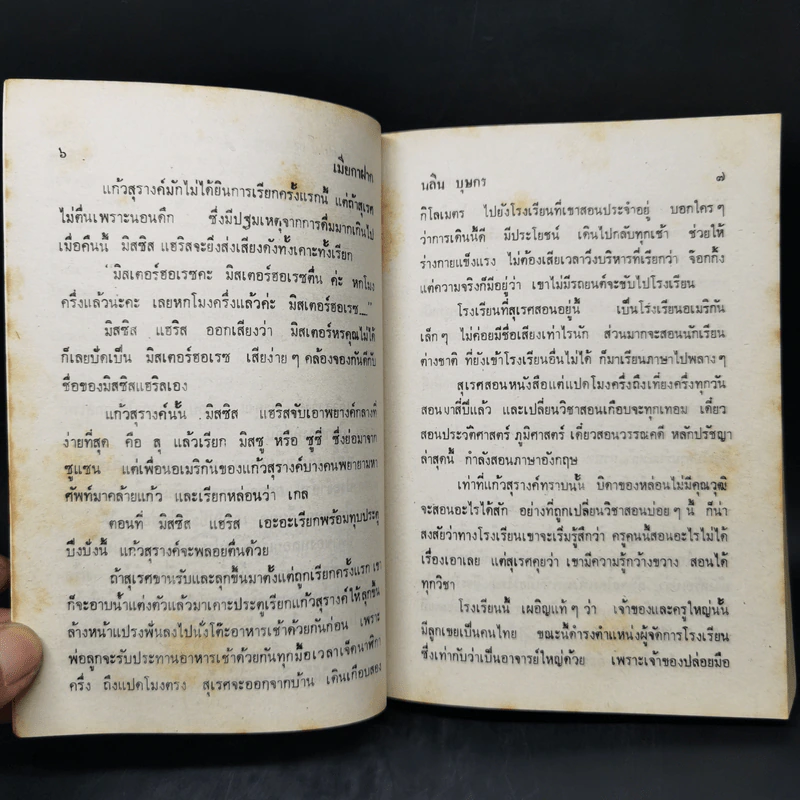 ๖
เมียกาฝาก
แก้วสุรางค์มักไม่ได้ยินการเรียกครั้งแรกนี้ แต่ถ้าสุเรศ
ไม่ตื่นเพราะนอนดึก ซึ่งมีปฐมเหตุจากการดื่มมากเกินไป
เมื่อคืนนี้ มิสซิส แฮริสจะยิ่งส่งเสียงดังทั้งเคาะทั้งเรียก
“มิสเตอร์ฮอเรซคะ มิสเตอร์ฮอเรซตื่น ค่ะ หกโมง
ครึ่งแล้วนะคะ เลยหกโมงครึ่งแล้วค่ะ มิสเตอร์ฮอเรซ....”
มิสซิส แฮริส ออกเสียงว่า มิสเตอร์หรคุณไม่ได้
ก็เลยบัดเป็น มิสเตอร์ฮอเรซ เสียง่าย ๆ คล้องจองกันดีกับ
ชื่อของมิสซิสแฮริสเอง
แก้วสุรางค์นั้น มิสซิส แฮริสจับเอาพยางค์กลางที่
ง่ายที่สุด คือ สุ แล้วเรียก มิสซู หรือ ซูซี่ ซึ่งย่อมาจาก
ซูแซน แต่เพื่อนอเมริกันของแก้วสุรางค์บางคนพยายามหา
ศัพท์มาคล้ายแก้ว และเรียกหล่อนว่า เกล
ตอนที่ มิสซิส แฮริส เอะอะเรียกพร้อมทุบประตู
ปังปังนี้ แก้วสุรางค์จะพลอยตื่นด้วย
ถ้าสุเรศขานรับและลุกขึ้นมาตั้งแต่ถูกเรียกครั้งแรก เขา
ก็จะอาบน้ำแต่งตัวแล้วมาเคาะประตูเรียกแก้วสุรางค์ให้ลุกขึ้น
ล้างหน้าแปรงฟันลงไปนั่งโต๊ะอาหารเช้าด้วยกันก่อน เพราะ
พ่อลูกจะรับประทานอาหารเช้าด้วยกันทุกมื้อ เวลาเจ็ดนาฬิกา
ครึ่ง ถึงแปดโมงตรง สุเรศจะออกจากบ้าน เดินเกือบสอง
นลิน บุษกร
๗
กิโลเมตร ไปยังโรงเรียนที่เขาสอนประจำอยู่ บอกใคร ๆ
ว่าการเดินนี้ดี มีประโยชน์ เดินไปกลับทุกเช้า ช่วยให้
ร่างกายแข็งแรง ไม่ต้องเสียเวลาวิ่งบริหารที่เรียกว่า จ๊อกกิ้ง
แต่ความจริงก็มีอยู่ว่า เขาไม่มีรถยนต์จะขับไปโรงเรียน
โรงเรียนที่สุเรศสอนอยู่นี้ เป็นโรงเรียนอเมริกัน
เล็ก ๆ ไม่ค่อยมีชื่อเสียงเท่าไรนัก ส่วนมากจะสอนนักเรียน
ต่างชาติ ที่ยังเข้าโรงเรียนอื่นไม่ได้ ก็มาเรียนภาษาไปพลาง ๆ
สุเรศสอนหนังสือแต่แปดโมงครึ่งถึงเที่ยงครึ่งทุกวัน
สอนมาสี่ปีแล้ว และเปลี่ยนวิชาสอนเกือบจะทุกเทอม เดี๋ยว
สอนประวัติศาสตร์ ภูมิศาสตร์ เดี๋ยวสอนวรรณคดี หลักปรัชญา
ล่าสุดนี้ กำลังสอนภาษาอังกฤษ
เท่าที่แก้วสุรางค์ทราบนั้น บิดาของหล่อนไม่มีคุณวุฒิ
จะสอนอะไรได้สัก อย่างที่ถูกเปลี่ยนวิชาสอนบ่อย ๆ นี้ ก็น่า
สงสัยว่าทางโรงเรียนเขาจะเริ่มรู้สึกว่า ครูคนนี้สอนอะไรไม่ได้
เรื่องเอาเลย แต่สุเรศคุยว่า เขามีความรู้กว้างขวาง สอนได้
ทุกวิชา
โรงเรียนนี้ เผอิญแท้ ๆ ว่า เจ้าของและครูใหญ่นั้น
มีลูกเขยเป็นคนไทย ขณะนี้ดำรงตำแหน่งผู้จัดการโรงเรียน
ซึ่งเท่ากับว่าเป็นอาจารย์ใหญ่ด้วย เพราะเจ้าของปล่อยมือ